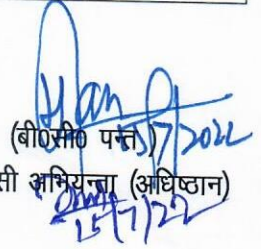 (बी०सी० पन्त)
15/7/2022
सी अभियन्ता (अधिष्ठान)
15/7/22